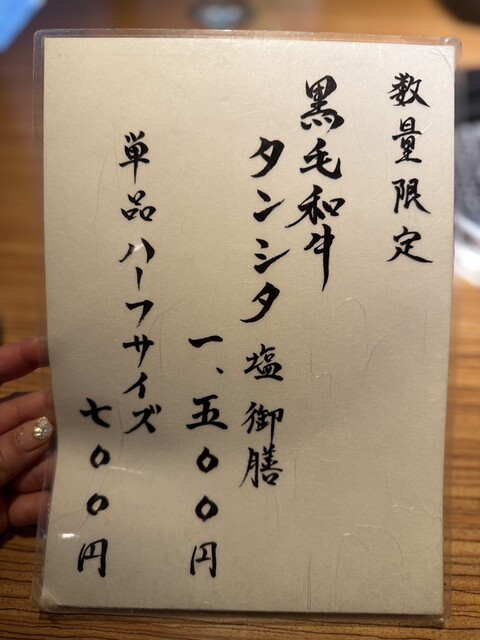 数量限定
黒毛和牛
タンシタ塩御膳
一、五〇〇円
単品ハーフサイズ
七〇〇円